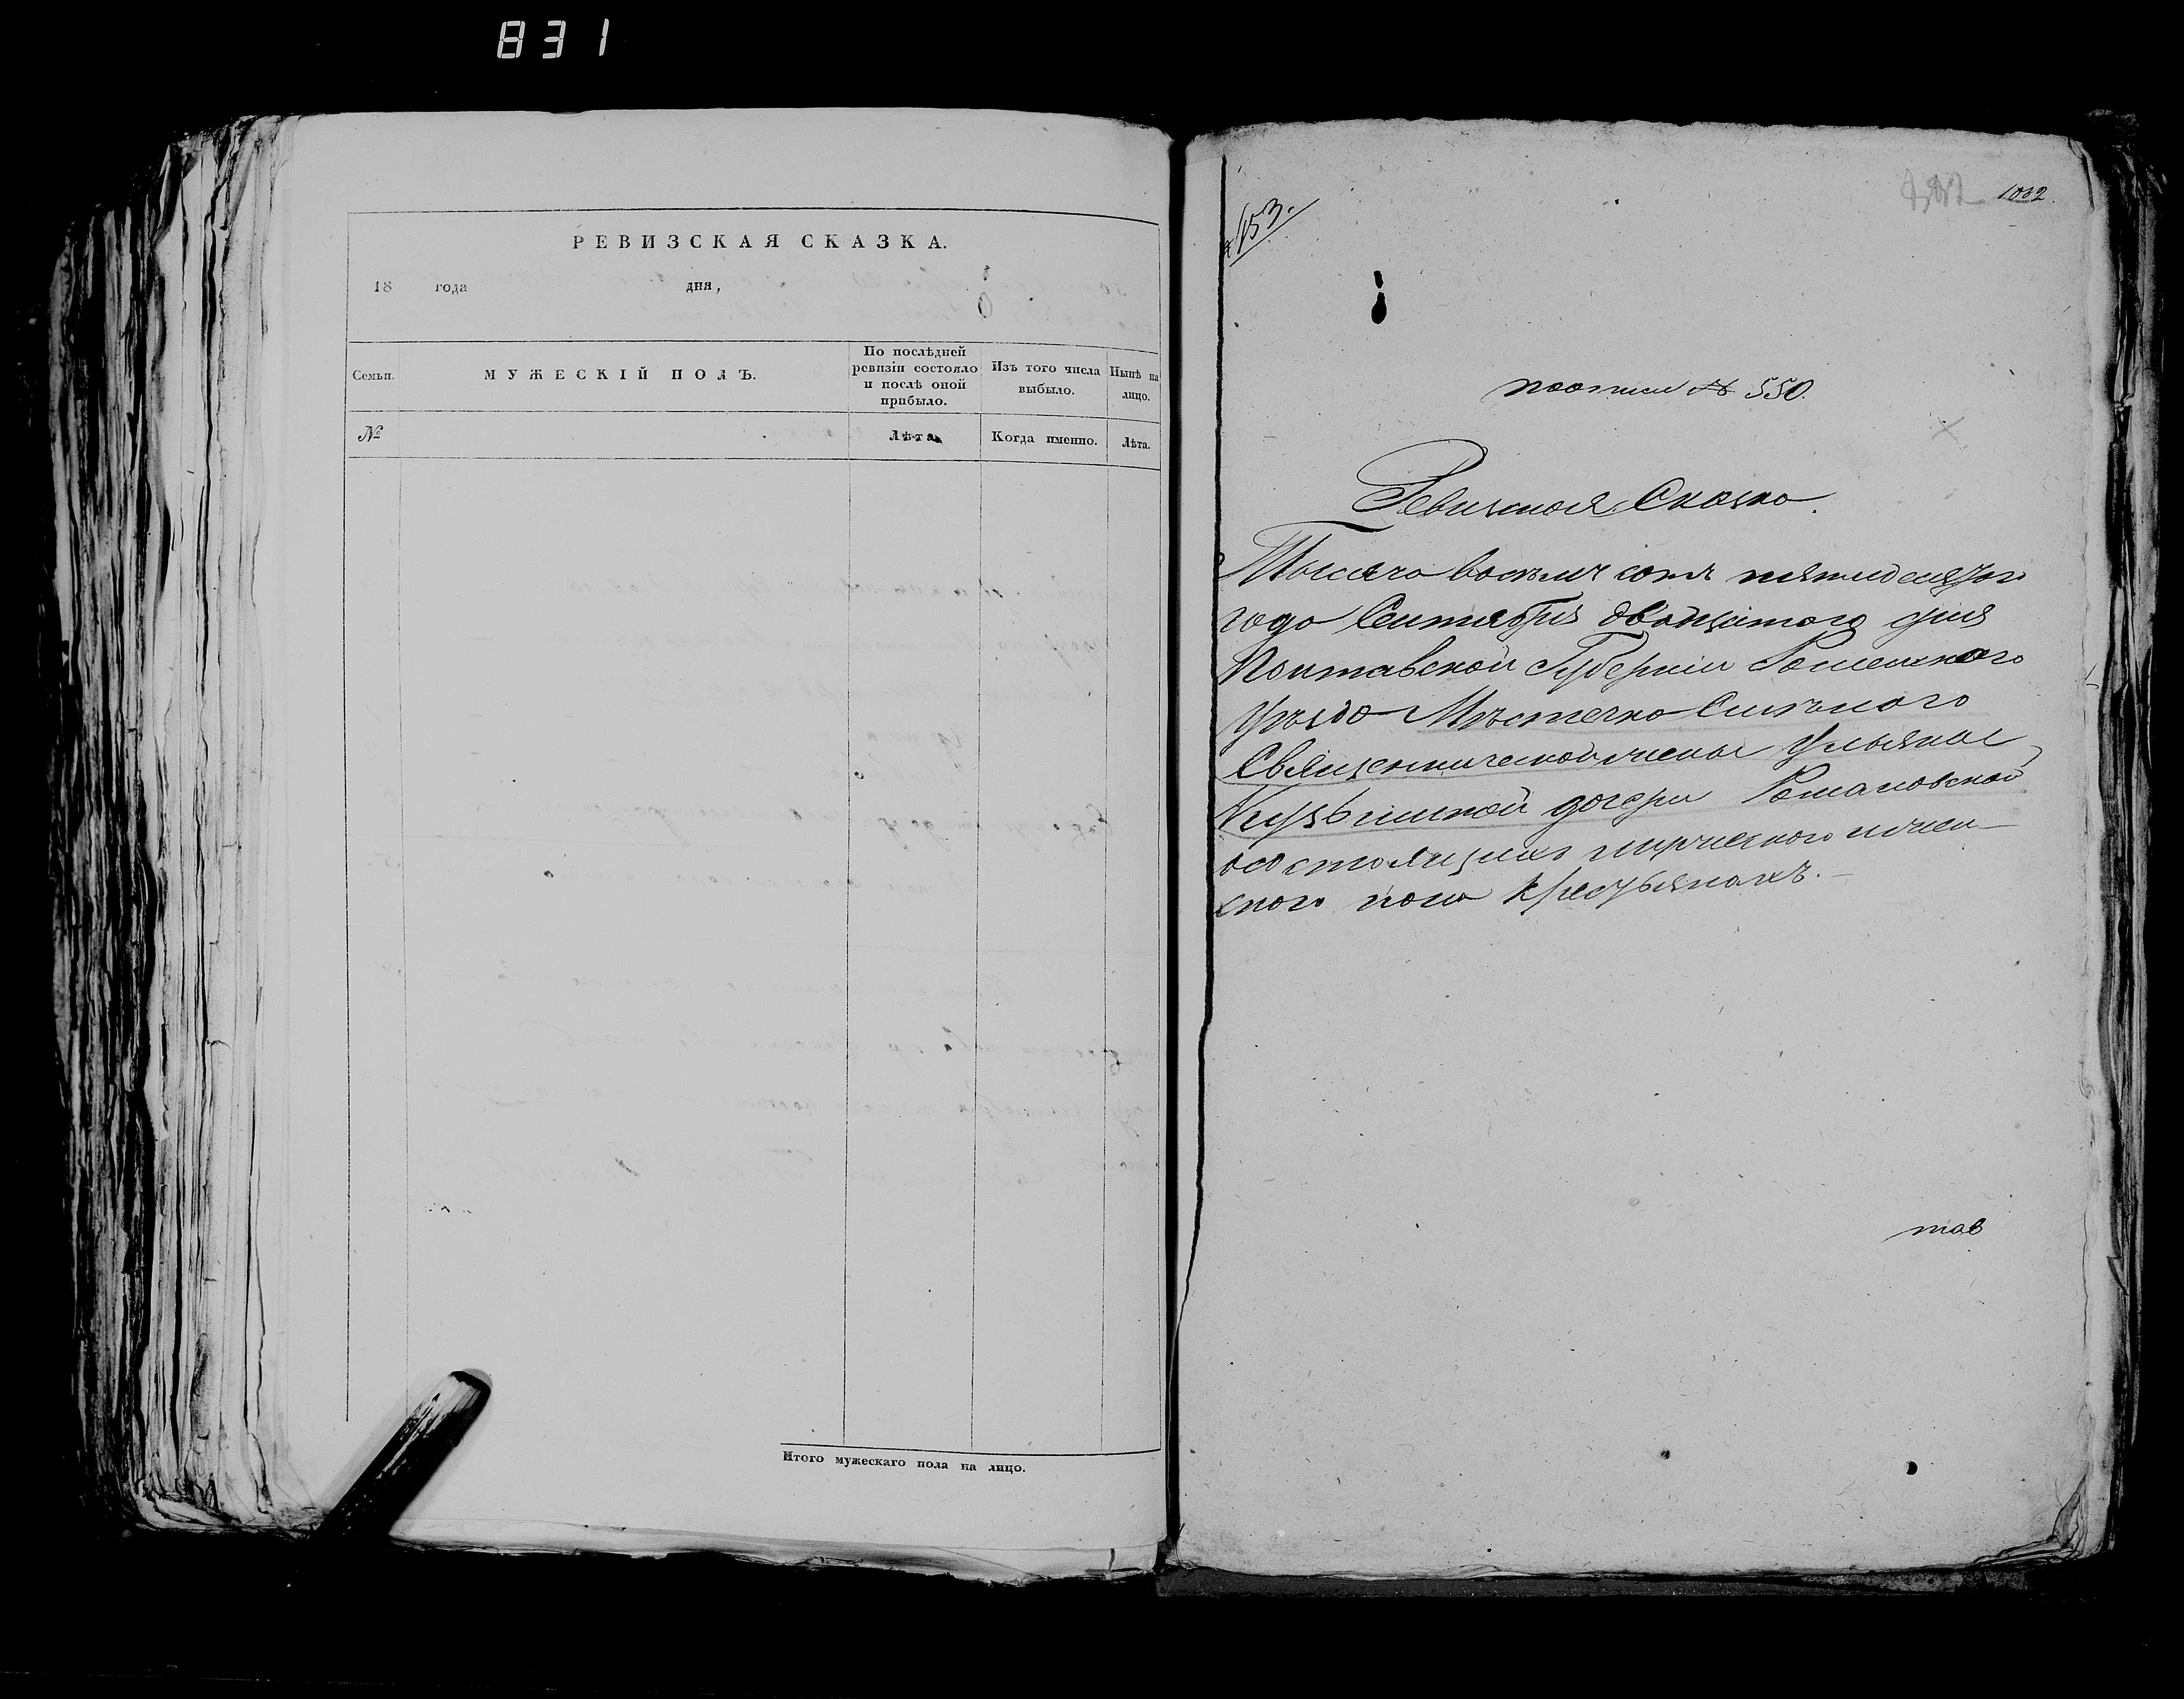 831
РЕВИЗСКАЯ СКАЗКА.
18 года дня,
Семьи.
МУЖЕСКІЙ ПОЛЪ.
По послѣдней
ревизіи состояло
и послѣ оной
прибыло.
Изъ того числа
выбыло.
Нынѣ на
лицо.
№
Лѣта
Когда именно.
Лѣта.
Итого мужескаго пола на лицо.
153.
1032
поописи № 550.
Ревизская Сказка.
Тысяча восемь сотъ пятидесятого
года Сентября двадцатого дня
Полтавской Губерніи Роменского
Уѣзда Мѣстечка Смѣлого
Священнической Ульяны
дочери Романовской
состоящихъ мужеского иженс
кого пола крестьянахъ.